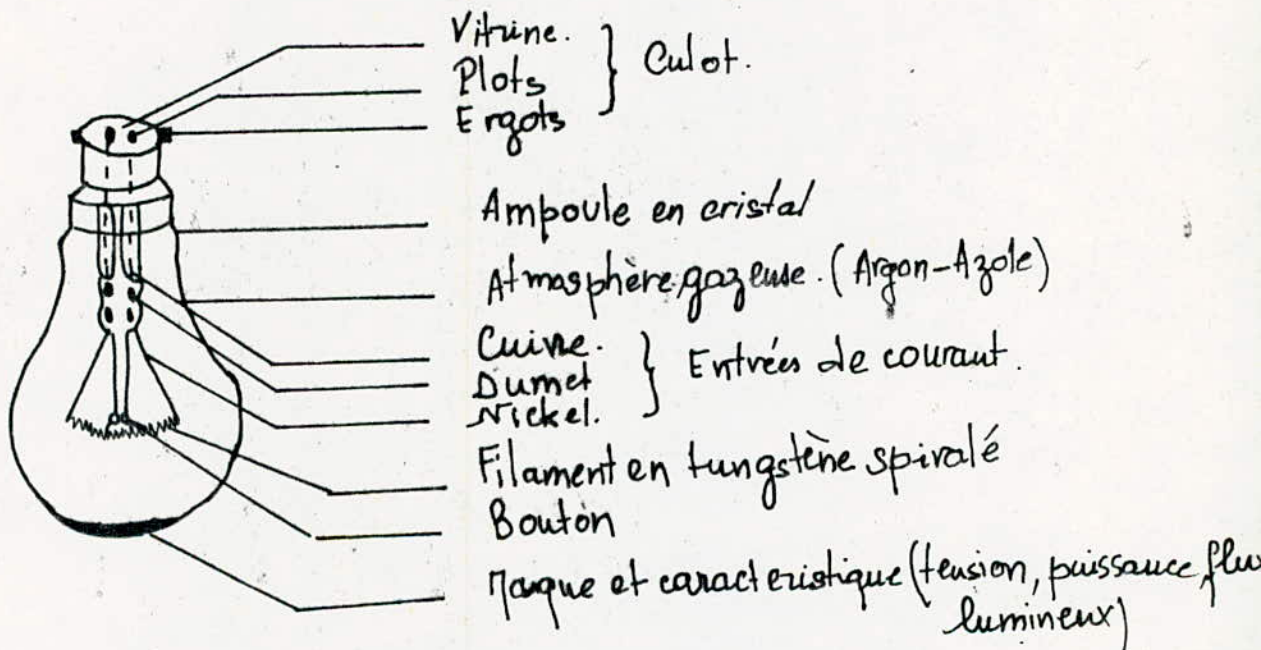 Vitrine. } Culot.
Plots
Ergots
Ampoule en cristal
Atmosphère gazeuse. (Argon-Azole)
Cuivre. } Entrées de courant.
Dumet
Nickel.
Filament en tungstène spiralé
Bouton
Marque et caracteristique (tension, puissance, flux
lumineux)